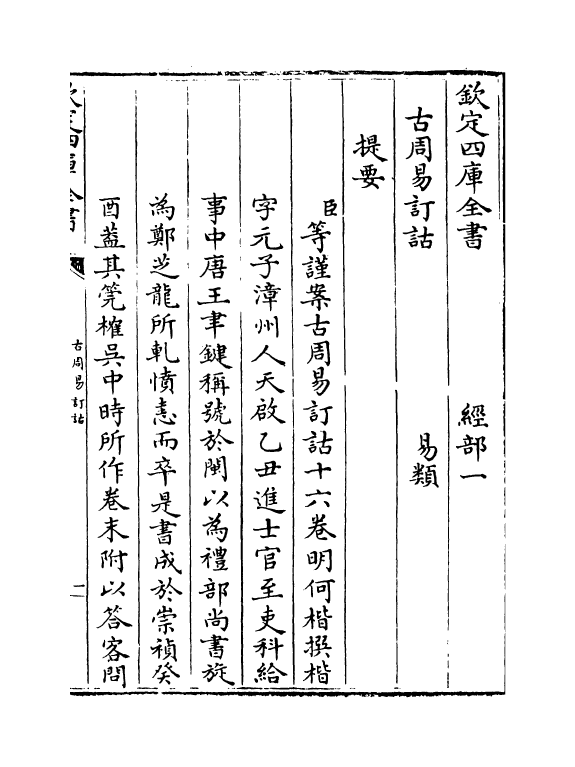 欽定四庫全書　經部一
古周易訂詁　易類
提要
臣等謹案古周易訂詁十六卷明何楷撰楷
字元子漳州人天啟乙丑進士官至吏科給
事中唐王聿鍵稱號於閩以為禮部尚書旋
為鄭芝龍所軋憤恚而卒是書成於崇禎癸
酉葢其筦榷吳中時所作卷末附以答客問
欽定四庫全書
古周易訂詁
二